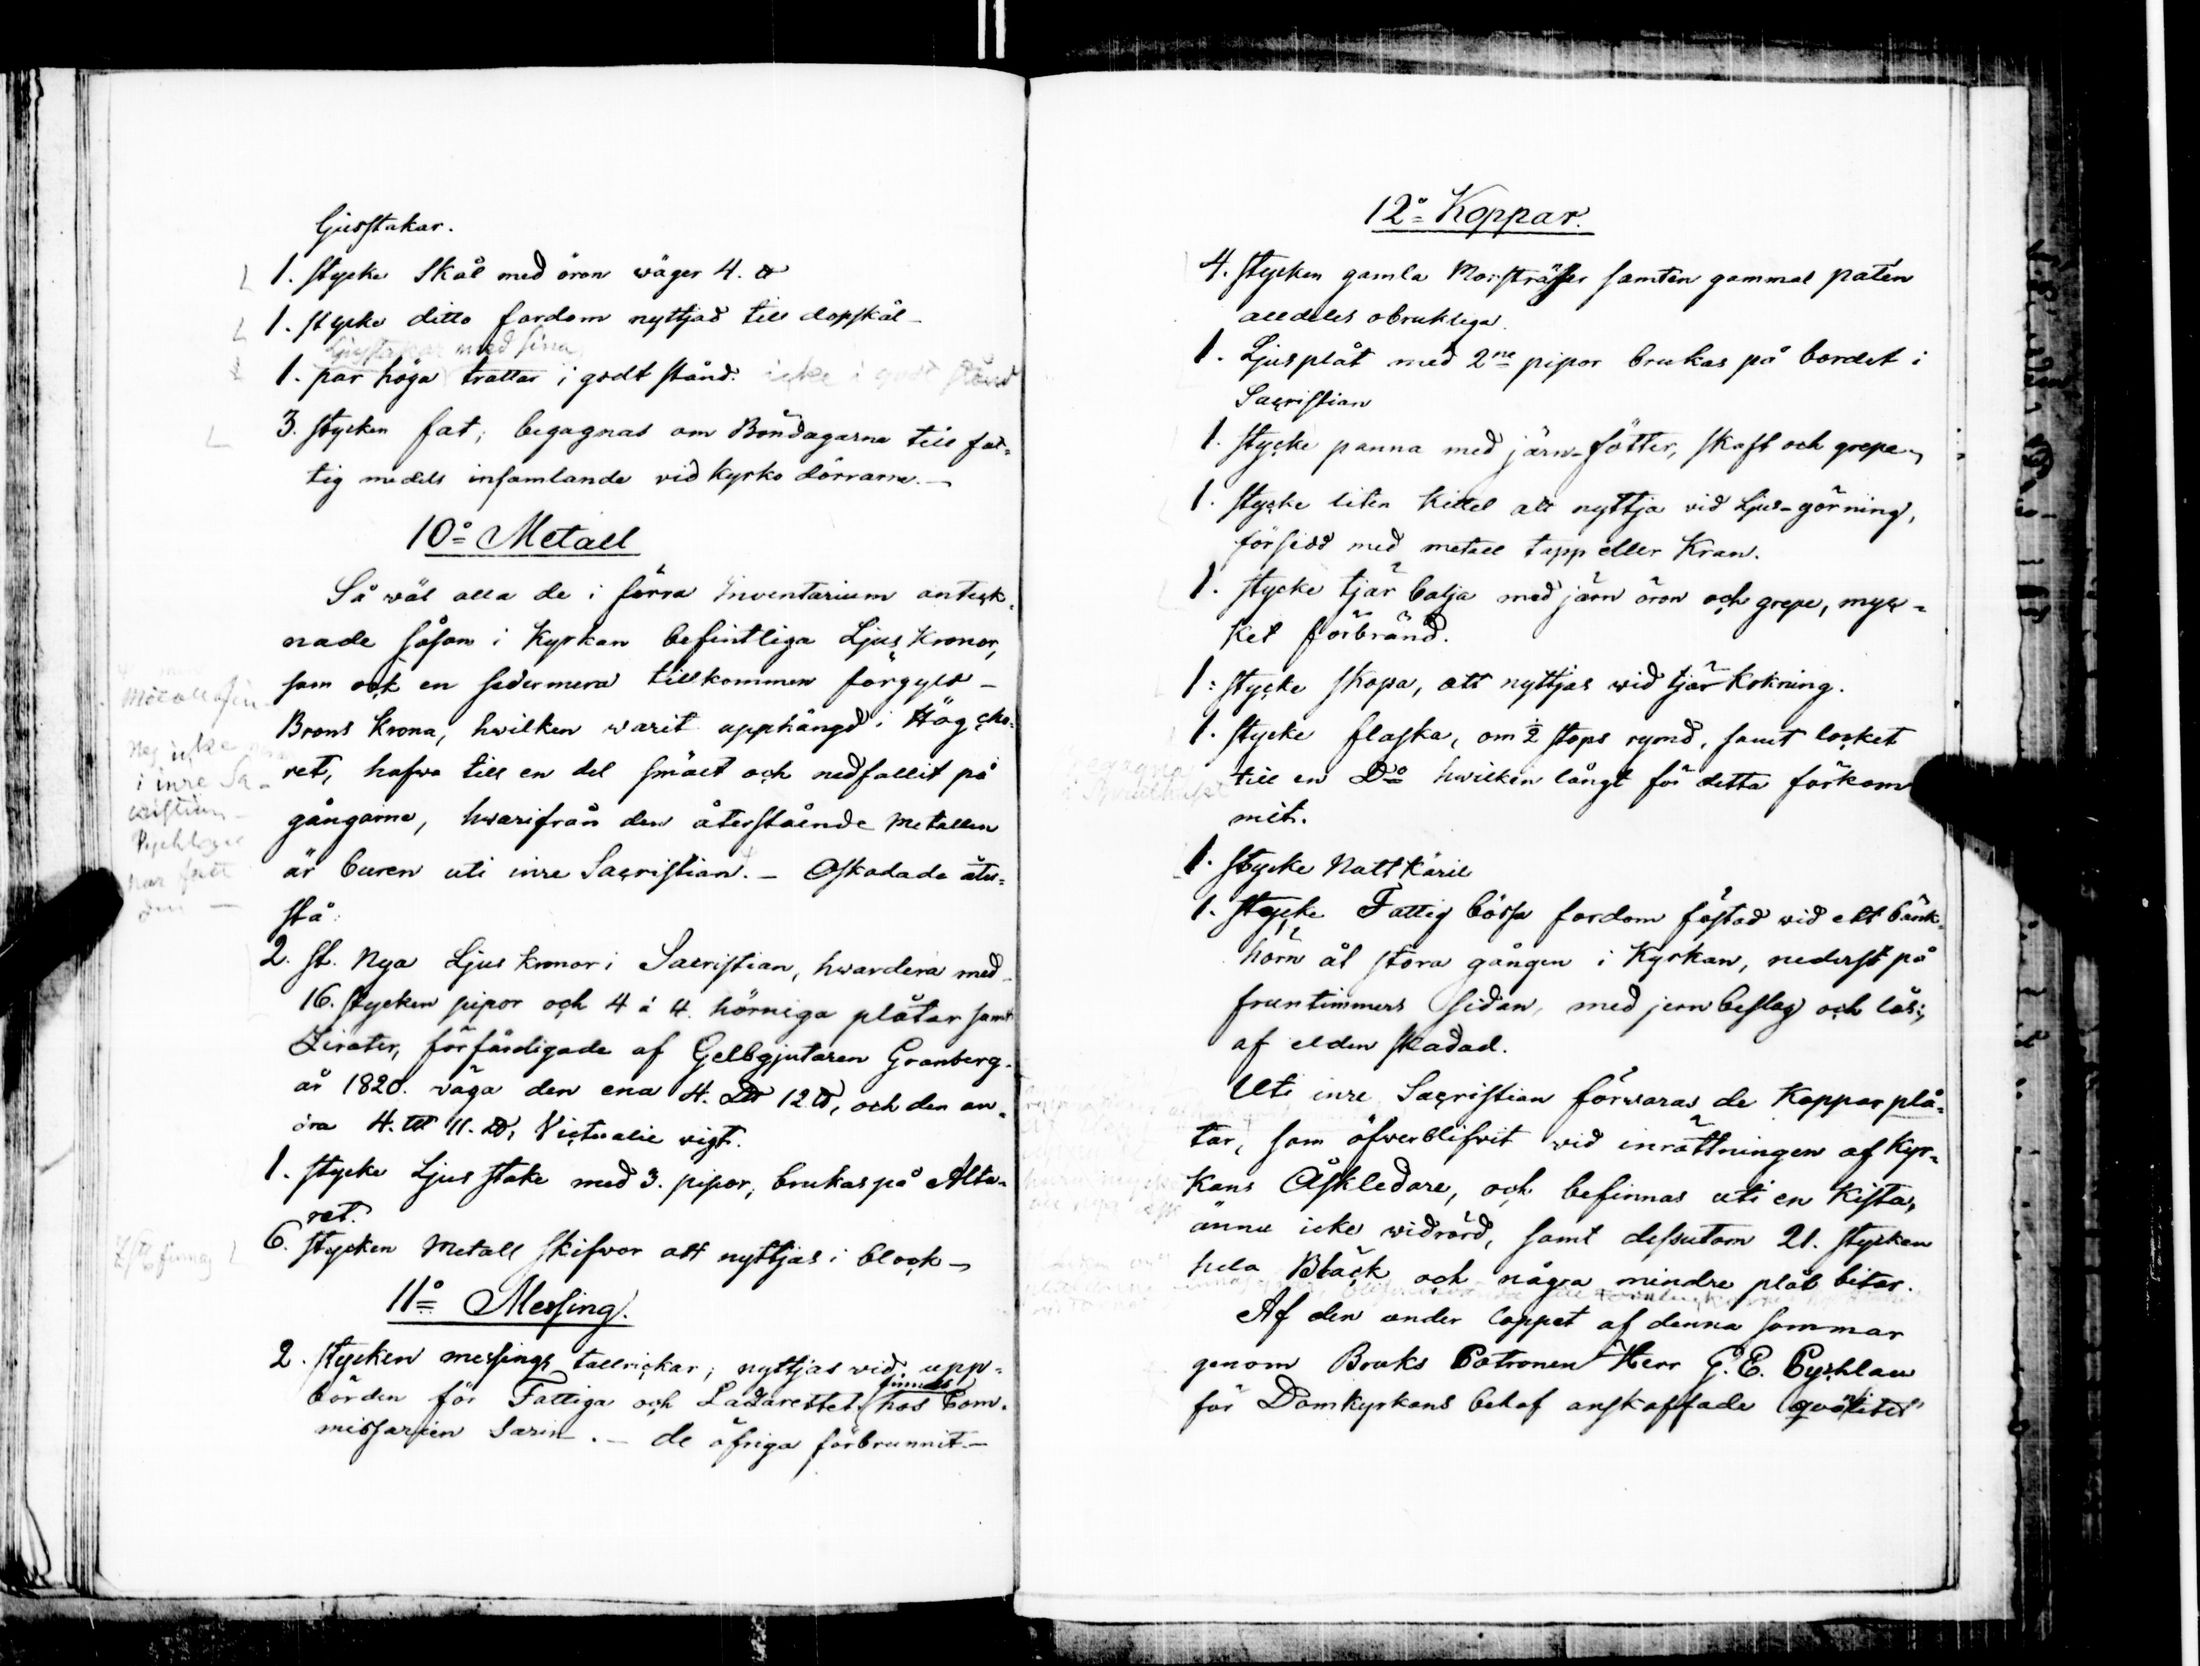 Ljusstakar.
1. stycke Skål med öron wäger 4. ℔
1. stycke ditto fordom nyttjad till dopskål –
Ljusstakar med sina
1. par höga trattar i godt stånd. icke i godt stånd
3. stycken fat; begagnas om Böndagarna till fat=
tig medels insamlande vid kyrko dörrarne. –
10º Metall
Så wäl alla de i förra Inventarium anteck=
nade såsom i Kyrkan befintliga Ljus Kronor,
som ock en sedermera tillkommen förgyld –
Brons Krona, hwilken warit upphängd i Hög cho=
ret, hafwa till en del smält och nedfallit på
gångarne, hwarifrån den återstående Metallen
är buren uti inre Sacristian. – Oskadade åter=
stå:
Nej icke
i inre Sa=
cristian –
har fått
den –
2. St. Nya Ljus kronor i Sacristian, hwardera med
16. stycken pipor och 4 á 4. hörniga plåtar samt
Zirater, förfärdigade af Gelbgjutaren Granberg.
år 1820. väga den ena 4. L℔ 12 ℔, och den an=
dra 4. L℔ 11. ℔, Victualie vigt.
1. stycke Ljus stake med 3. pipor, brukas på Alta=
ret.
6. stycken Metall skifvor att nyttjas i block –
finnas
11º Messing.
2. stycken messings tallrickar; nyttjas vid upp=
börden för Fattiga och Lazarettet (finnas hos Com=
missarien Sarin. – de öfriga förbrunnit –
12º Koppar.
4. stycken gamla Morsträsser samt en gammal paten
alldeles obrukliga.
1. Ljusplåt med 2ne pipor brukas på bordet i
Sacristian
1. stycke panna med järn-fötter, skaft och grepe –
1. stycke liten kittel att nyttja vid Ljus-görning,
försedd med metall tapp eller Kran.
1. stycke tjär balja med järn öron och grepe, myc=
ket förbränd.
1. stycke skopa, att nyttjas wid tjär kokning.
1. stycke flaska, om ½ stops rymd, samt locket
till en Dº hwilken långt för detta förkom
mit.
1. stycke Nattkäril
1. stycke Fattig bössa fordom fästad wid ett bänk=
hörn åt stora gången i Kyrkan, nederst på
fruntimmers sidan, med jern beslag och lås;
af elden skadad.
Uti inre Sacristian förwaras de Kopparplå=
tar, som öfwerblifwit vid inrättningen af Kyr=
kans Åskledare, och befinnas uti en Kista,
ännu icke widrörd, samt dessutom 21. stycken
hela Bläck och några mindre plåt bitar.
Af den under loppet af denna sommar
genom Bruks Patronen Herr G. E. Pychlau
för Domkyrkans behof anskaffade qvantitet